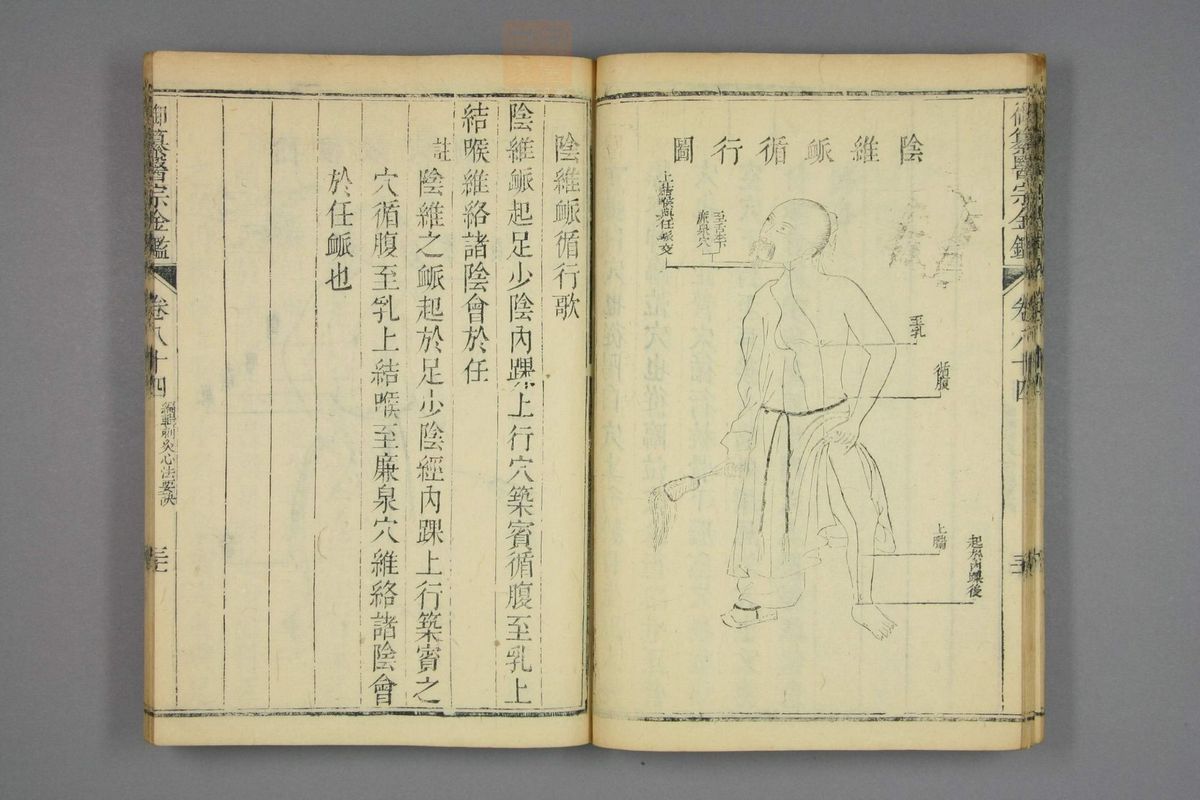 陰維脈循行圖
上結喉與任脈交
至舌本下
廉泉穴
至乳
循腹
上腨
起於內踝後
御纂醫宗金鑑
卷八十四
陰維脈循行歌
陰維脈起足少陰內踝上行穴築賓循腹至乳上
結喉維絡諸陰會於任
註
陰維之脈起於足少陰經內踝上行築賓之
穴循腹至乳上結喉至廉泉穴維絡諸陰會
於任脈也
御纂醫宗金鑑
卷八十四
編輯刺灸心法要訣